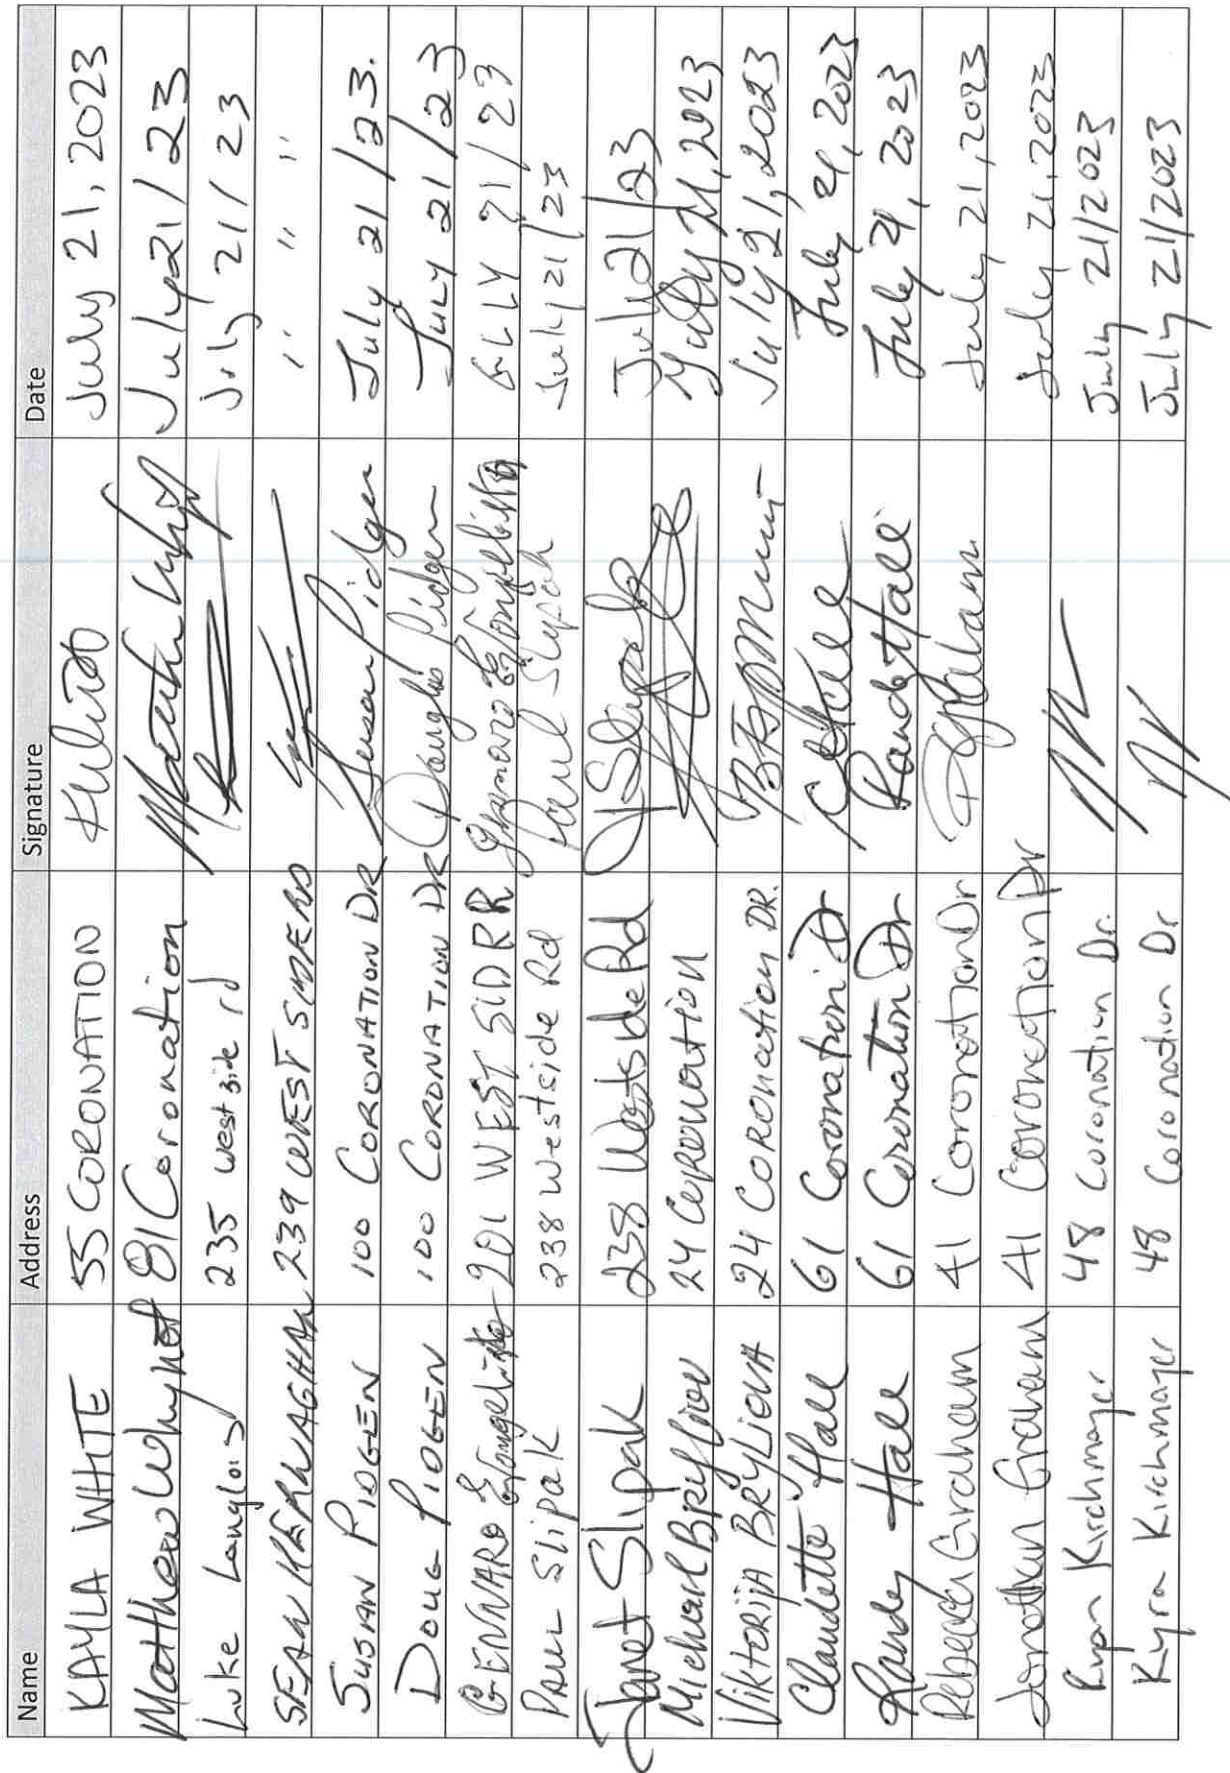 Name Address Signature Date
KAYLA WHITE 55 CORONATION KWhite July 21, 2023
Matthew Whynot 81 Coronation July 21/23
Luke Langlois 235 west side rd July 21/23
SEAN KERNAGHAN 239 WEST SIDE RD " " "
SUSAN PIDGEN 100 CORONATION DR Susan Pidgen July 21/23.
DOUG PIDGEN 100 CORONATION DR Douglas Pidgen JULY 21/23
GENNARO Evangelista 201 WEST SID RR Gennaro Evangelista GLLY 21/23
PAUL SlipaK 238 Westside Rd Paul Slipak July 21/23
Janet Slipak 238 Westside Rd JSlipak July 21/23
Michael Bryliov 24 Coronation July 21, 2023
ViktoriJA BRYLIOVA 24 CORONation DR. July 21, 2023
Claudette Hall 61 Coronation Dr CHall July 21, 2023
Randy Hall 61 Coronation Dr Randy Hall July 21, 2023
Rebecca Graham 41 Coronation Dr RGraham July 21, 2023
Jonathan Graham 41 Coronation Dr July 21, 2023
Ryan Kirchmayer 48 Coronation Dr. July 21/2023
Kyra Kirchmayer 48 Coronation Dr July 21/2023